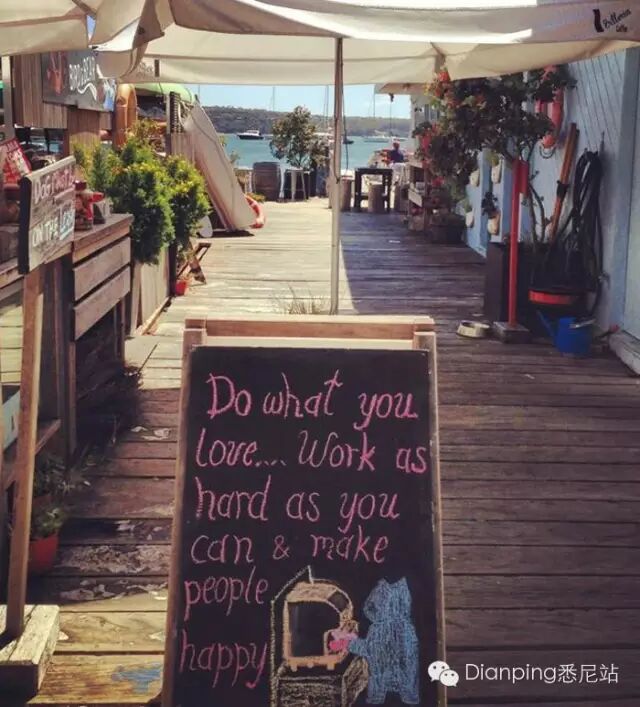 Bellerin
BIRD & BEAR
DOG FRIENDLY
ON THE
Do what you
love.... Work as
hard as you
can & make
people
happy
Dianping悉尼站